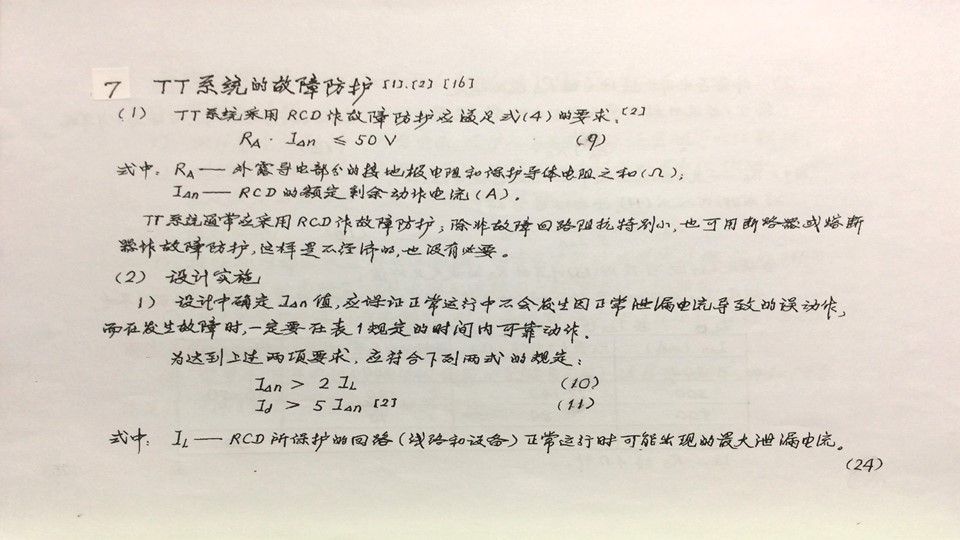 7 TT系统的故障防护 [1].[2] [16]
(1) TT系统采用RCD作故障防护应满足式(4)的要求.[2]
RA · IΔn ≤ 50V (9)
式中: RA — 外露导电部分的接地极电阻和保护导体电阻之和(Ω);
IΔn — RCD的额定剩余动作电流(A)。
TT系统通常应采用RCD作故障防护;除非故障回路阻抗特别小,也可用断路器或熔断
器作故障防护,这样是不经济的,也没有必要。
(2) 设计实施
1) 设计中确定IΔn值,应保证正常运行中不会发生因正常泄漏电流导致的误动作,
而在发生故障时,一定要在表1规定的时间内可靠动作.
为达到上述两项要求,应符合下列两式的规定:
IΔn > 2 IL (10)
Id > 5 IΔn [2] (11)
式中: IL — RCD所保护的回路(线路和设备)正常运行时可能出现的最大泄漏电流。
(24)